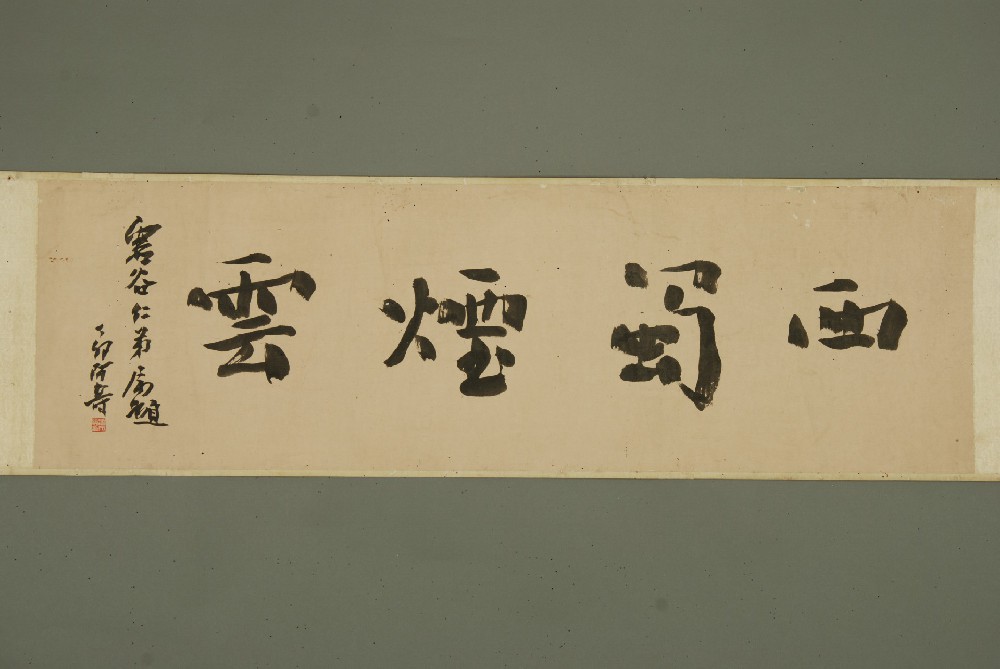 西蜀煙雲
谷仁弟屬題
丁卯阿壽